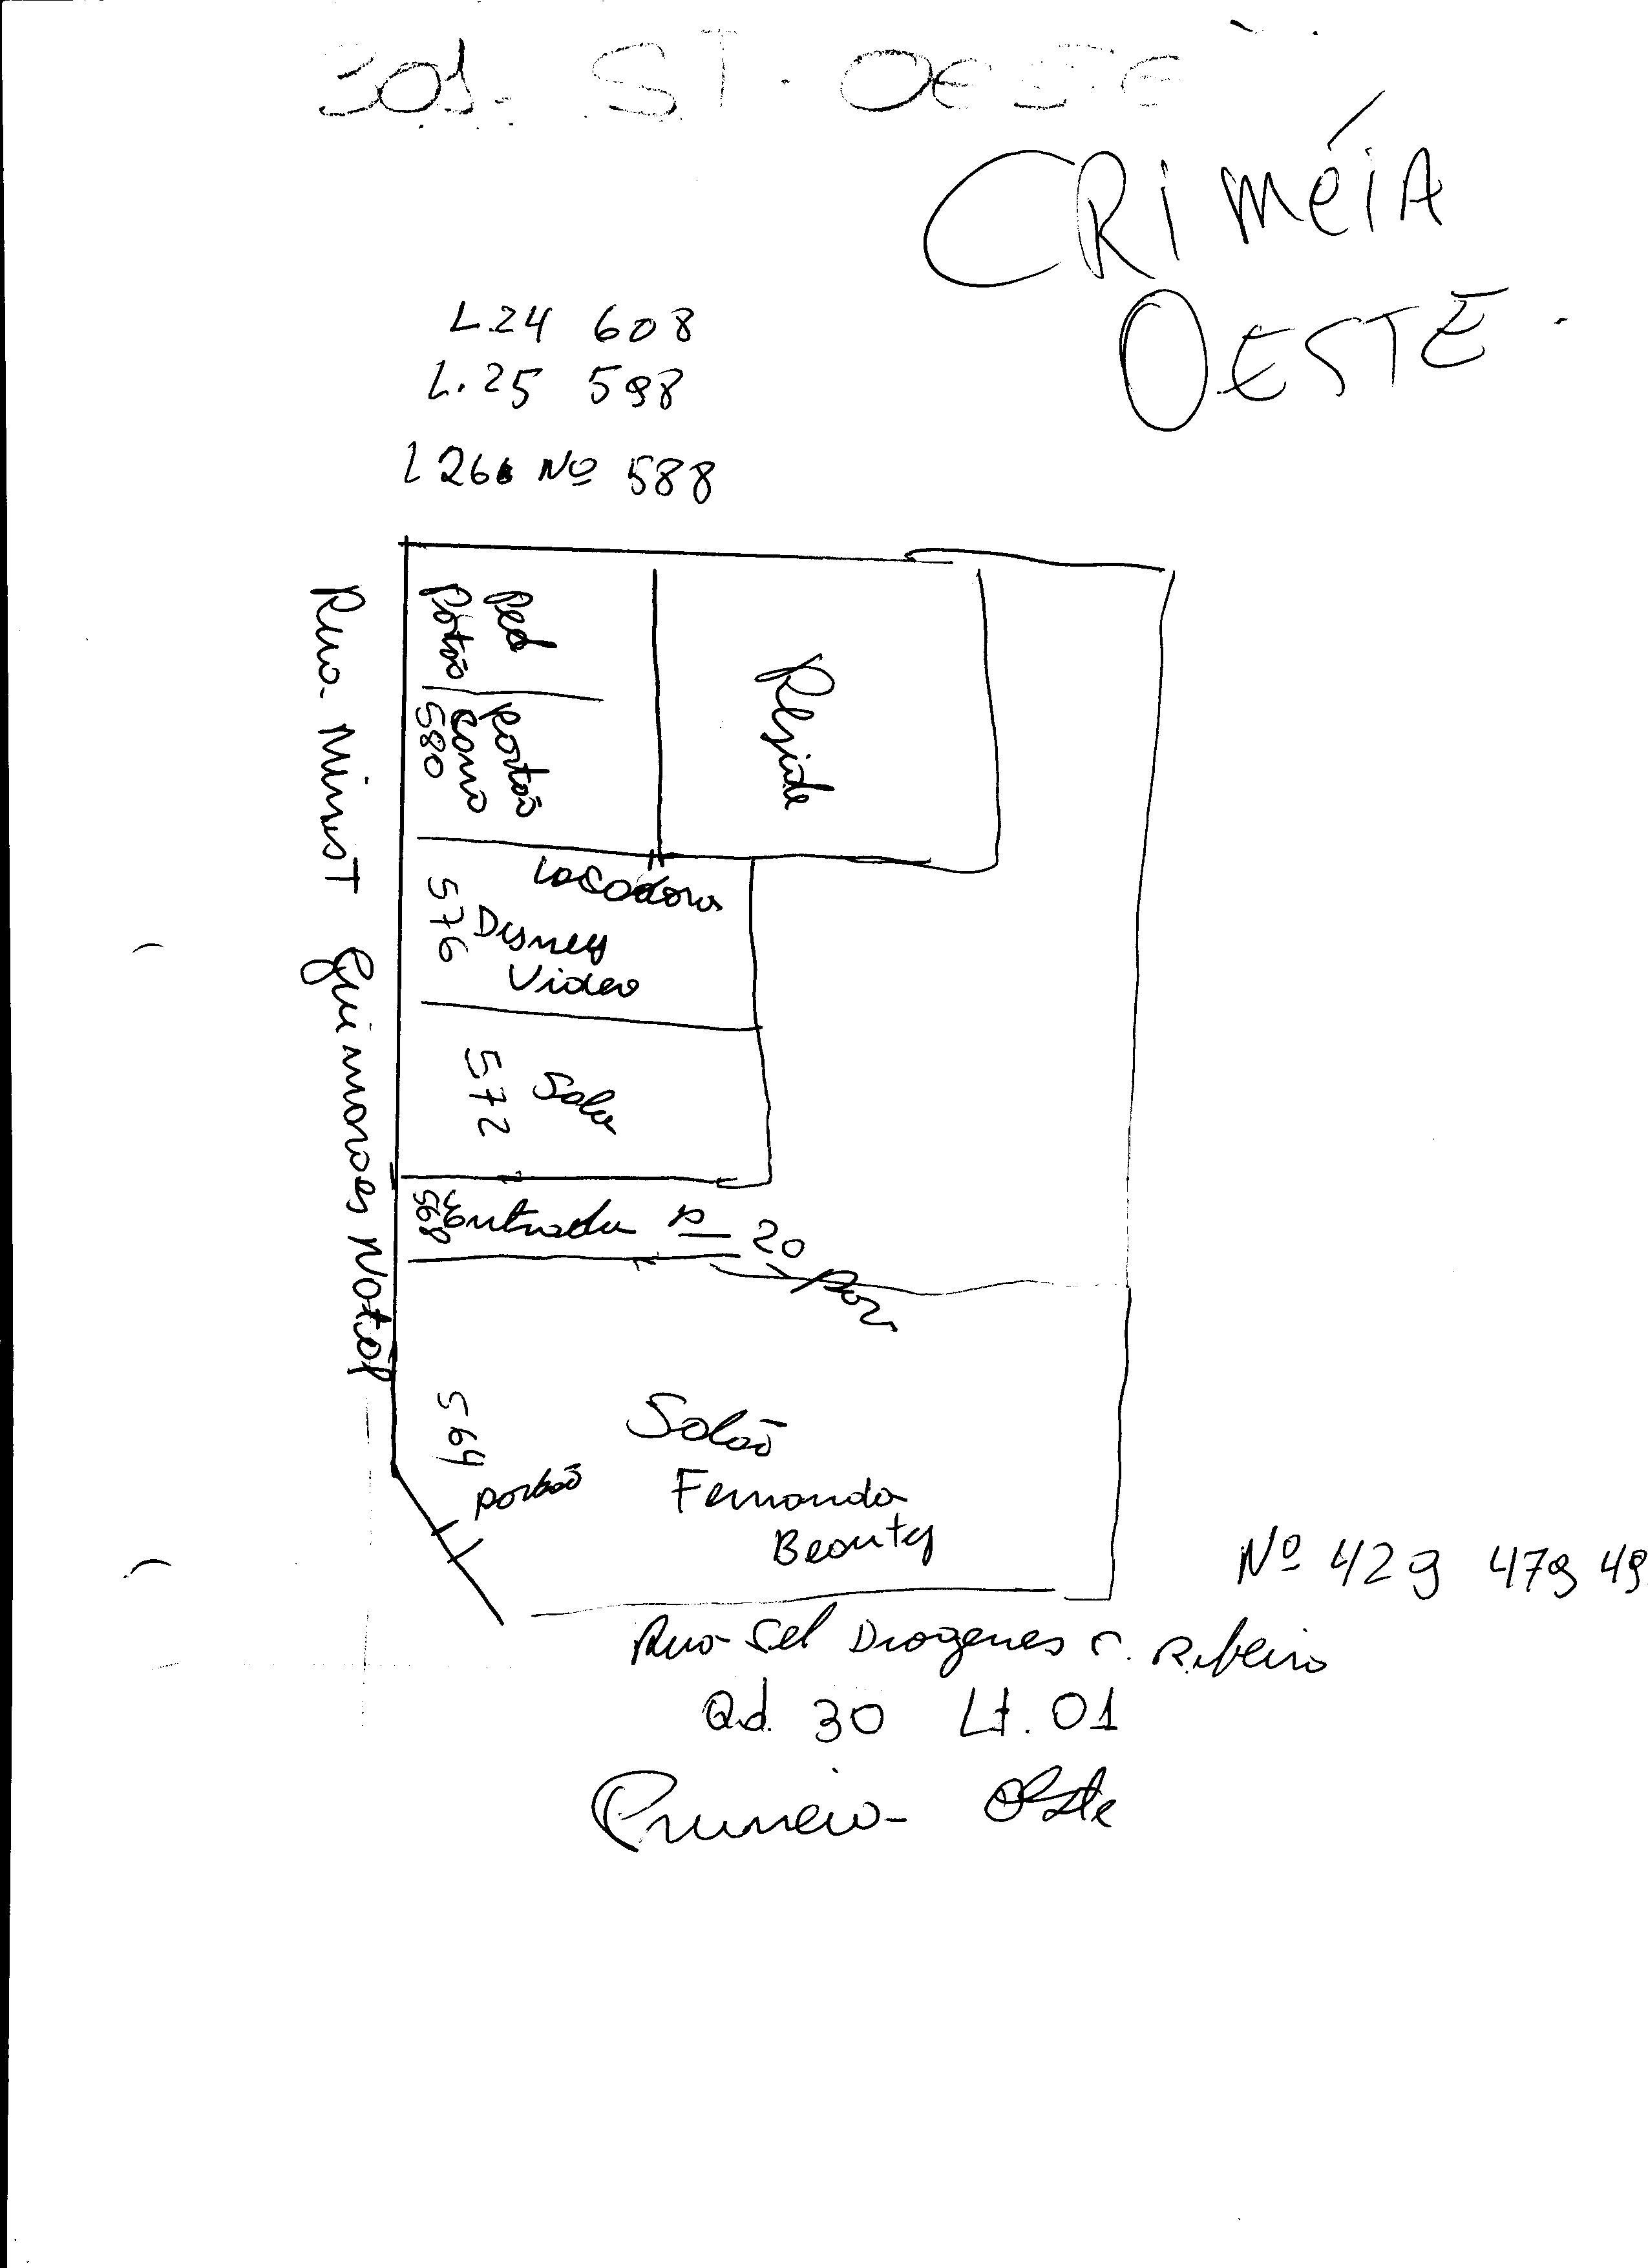 301. ST. OESTE
CRIMÉIA
OESTE.
L.24 608
L.25 598
L 26 Nº 588
Rua Minist Guimaraes Natal
Ped
Portão
Portão
Carro
580
Reside
Locadora
576 Disney
Video
572 Sala
568 Entrada p 20
Pav
564
Portão
Salão
Fernanda
Beauty
Nº 429 479 49
Rua Sel Diogenes C. Ribeiro
Qd. 30 Lt. 01
Oeste